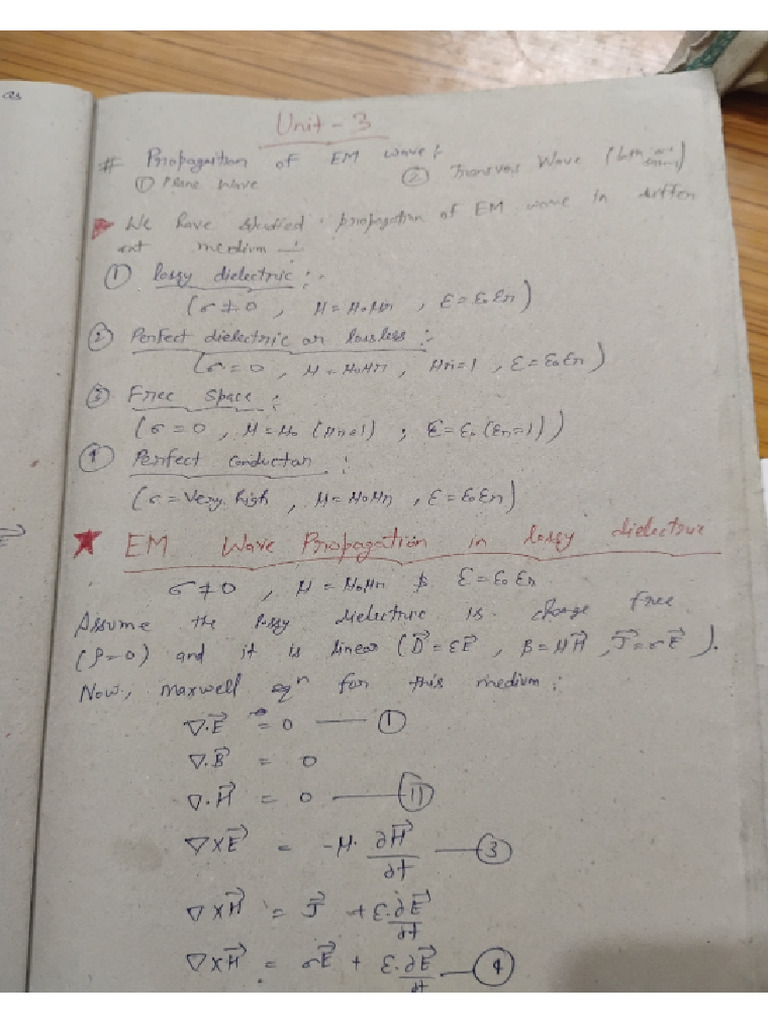 as
Unit - 3
# Propagation of EM wave :
① Plane wave ② Transvers Wave (
▶ We have studied propagation of EM wave in differ
ent medium :-
① lossy dielectric :-
(σ ≠ 0 , μ = μ₀μr , ε = ε₀εr)
② Perfect dielectric or lossless :-
(σ = 0 , μ = μ₀μr , μr = 1 , ε = ε₀εr)
③ Free space :
(σ = 0 , μ = μ₀ (μr = 1) ; ε = ε₀ (εr = 1))
④ Perfect conductor :
(σ = very high , μ = μ₀μr , ε = ε₀εr)
★ EM Wave Propagation in lossy dielectric
σ ≠ 0 , μ = μ₀μr & ε = ε₀εr
Assume the lossy dielectric is charge free
(ρ = 0) and it is linear (D⃗ = εE⃗ , B = μH⃗ , J⃗ = σE⃗).
Now, maxwell eqⁿ for this medium :
∇.E⃗ = 0 — ①
∇.B⃗ = 0
∇.H⃗ = 0 — ⑪
∇×E⃗ = -μ. ∂H⃗/∂t — ③
∇×H⃗ = J⃗ + ε.∂E⃗/∂t
∇×H⃗ = σE⃗ + ε.∂E⃗/∂t — ④